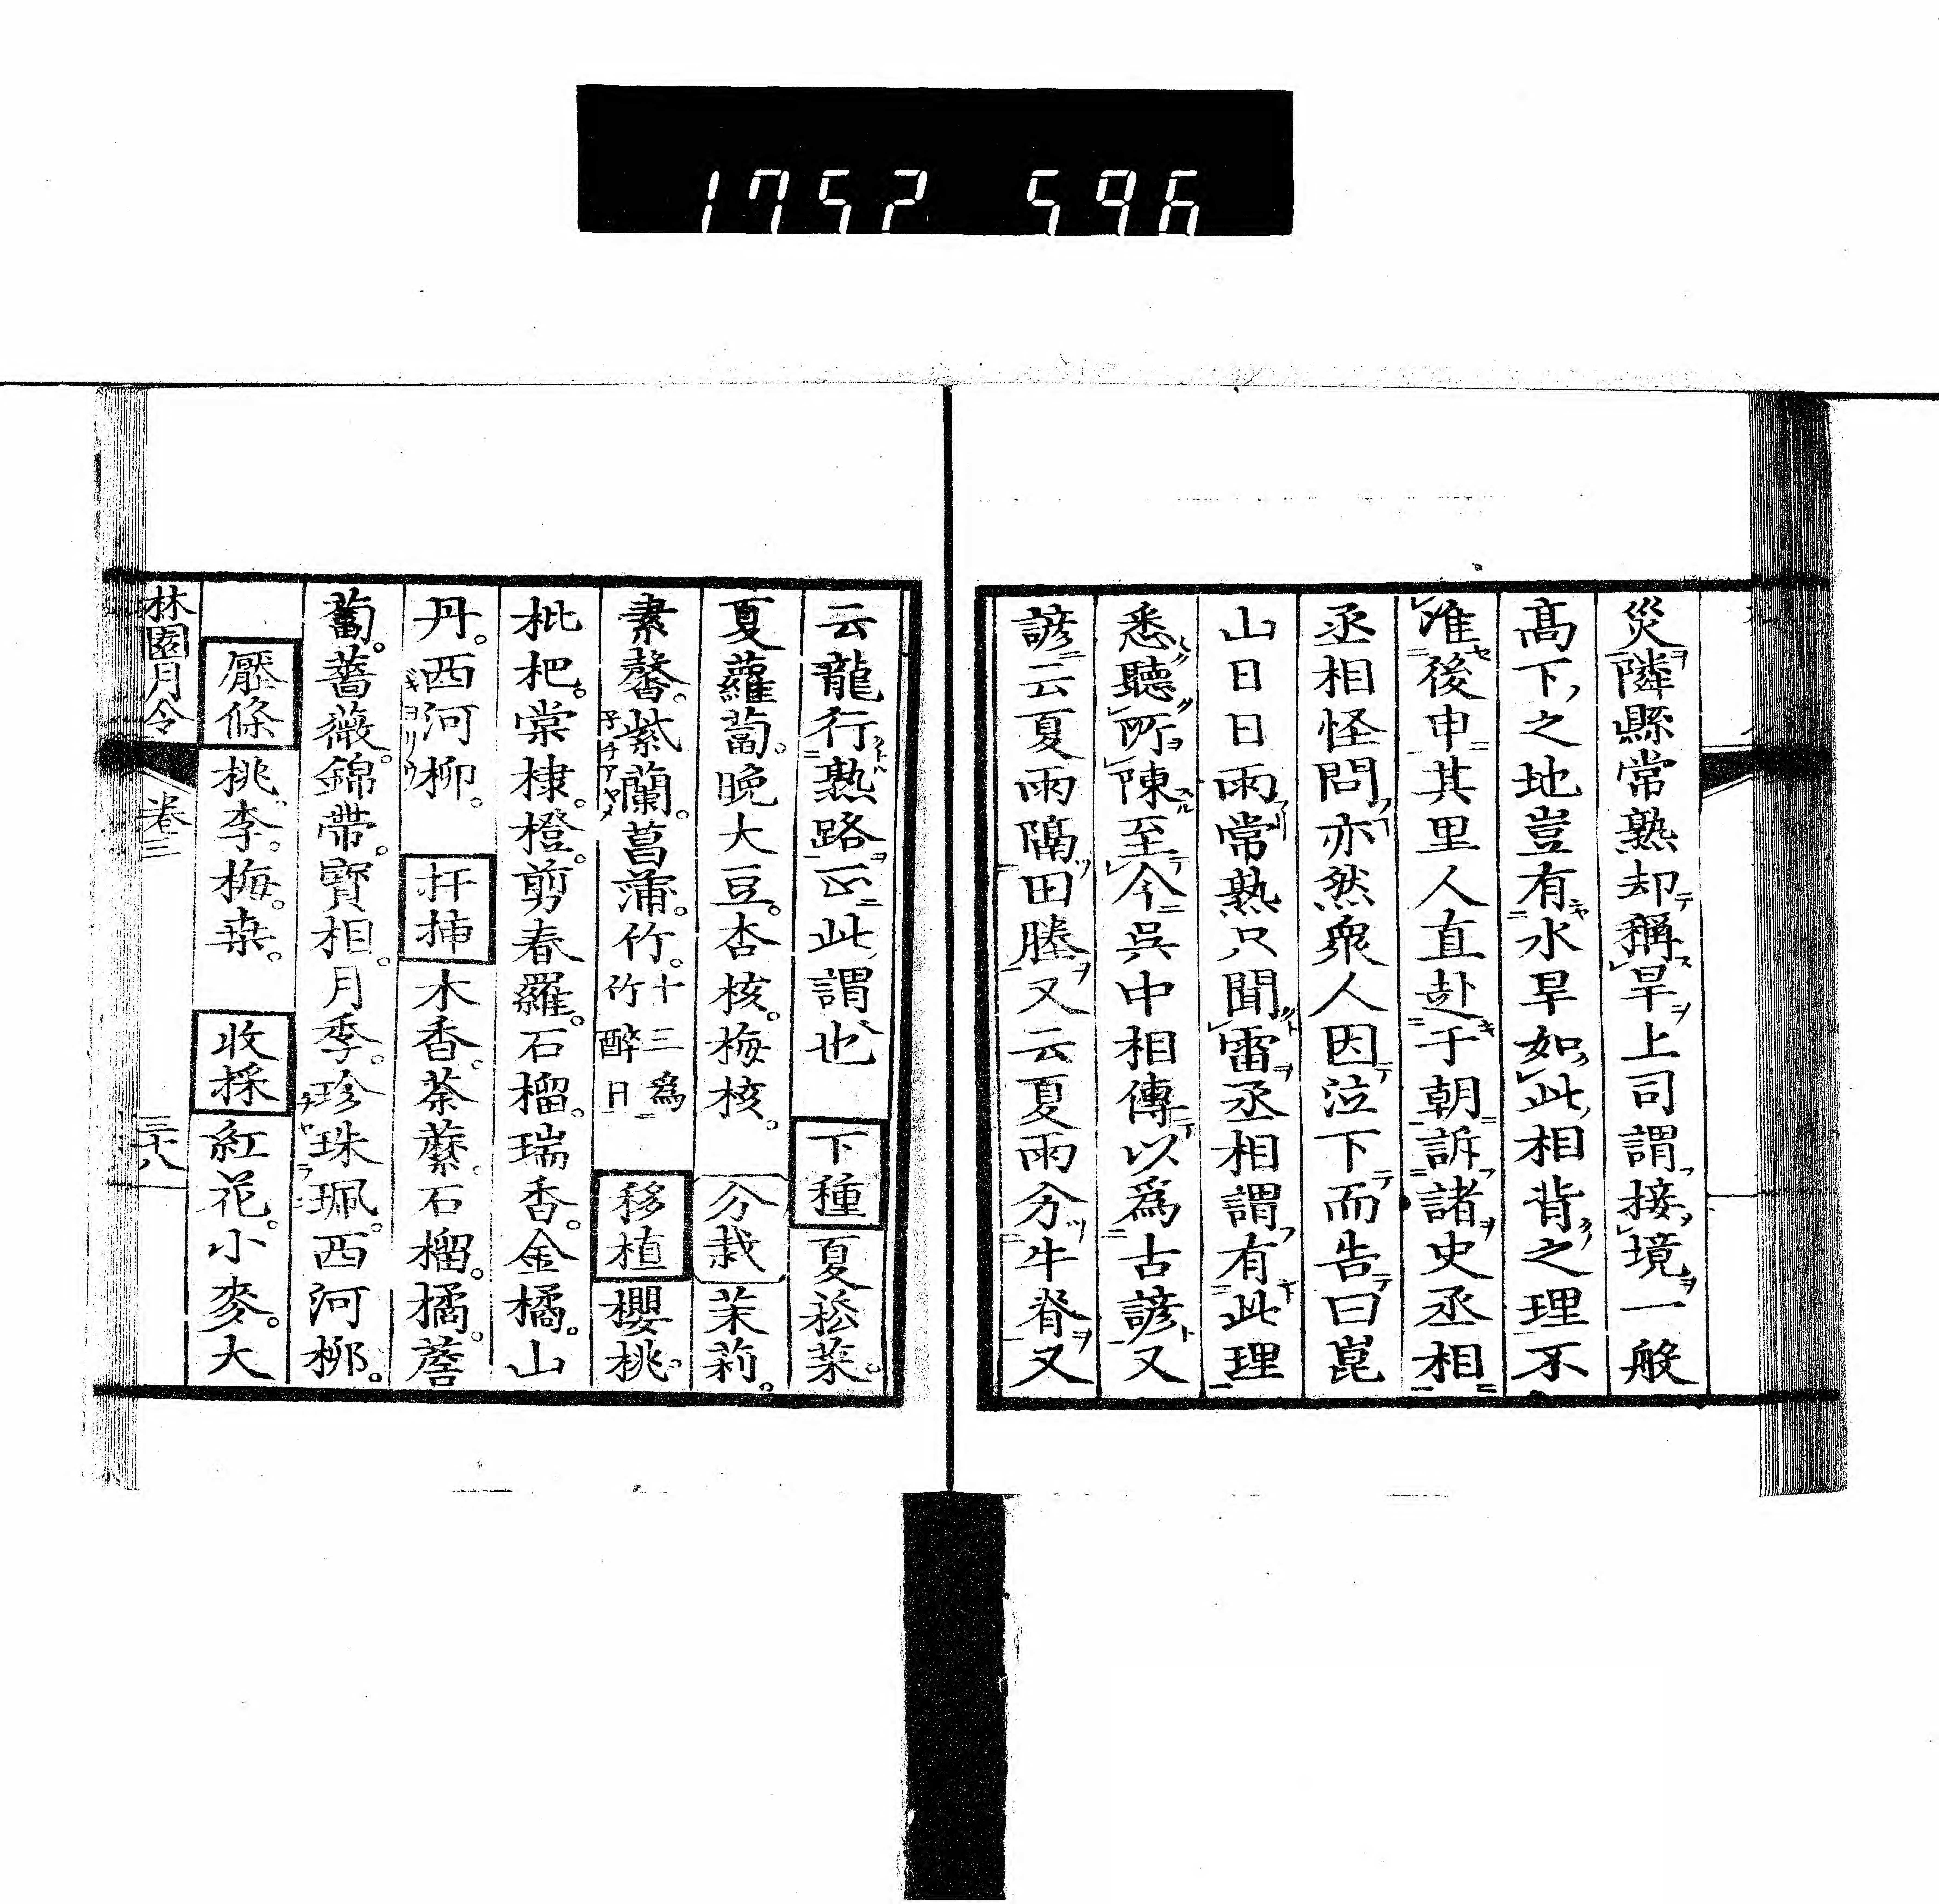 1752 596
災隣縣常熟却稱旱上司謂接境一般
髙下之地豈有水旱如此相背之理不
准後申其里人直赴于朝訴諸史丞相
丞相怪問亦然衆人因泣下而告曰崑
山日日雨常熟只聞雷丞相謂有此理
悉聽所陳至今吳中相傳以爲古諺又
諺云夏雨隔田塍又云夏雨分牛脊又
云龍行熟路正此謂也 下種 夏菘菜。
夏蘿蔔。晩大豆。杏核。梅核。 分栽 茉莉。
素馨。紫蘭。菖蒲。竹。十三爲竹醉日 移植 櫻桃。
枇杷。棠棣。橙。剪春羅。石榴。瑞香。金橘。山
丹。西河柳。 扦揷 木香。荼蘼。石榴。橘。薝
蔔。薔薇。錦帶。寳相。月季。珍珠珮。西河栁。
壓條 桃。李。梅。桒。 收採 紅花。小麥。大
林園月令 卷三 三十八